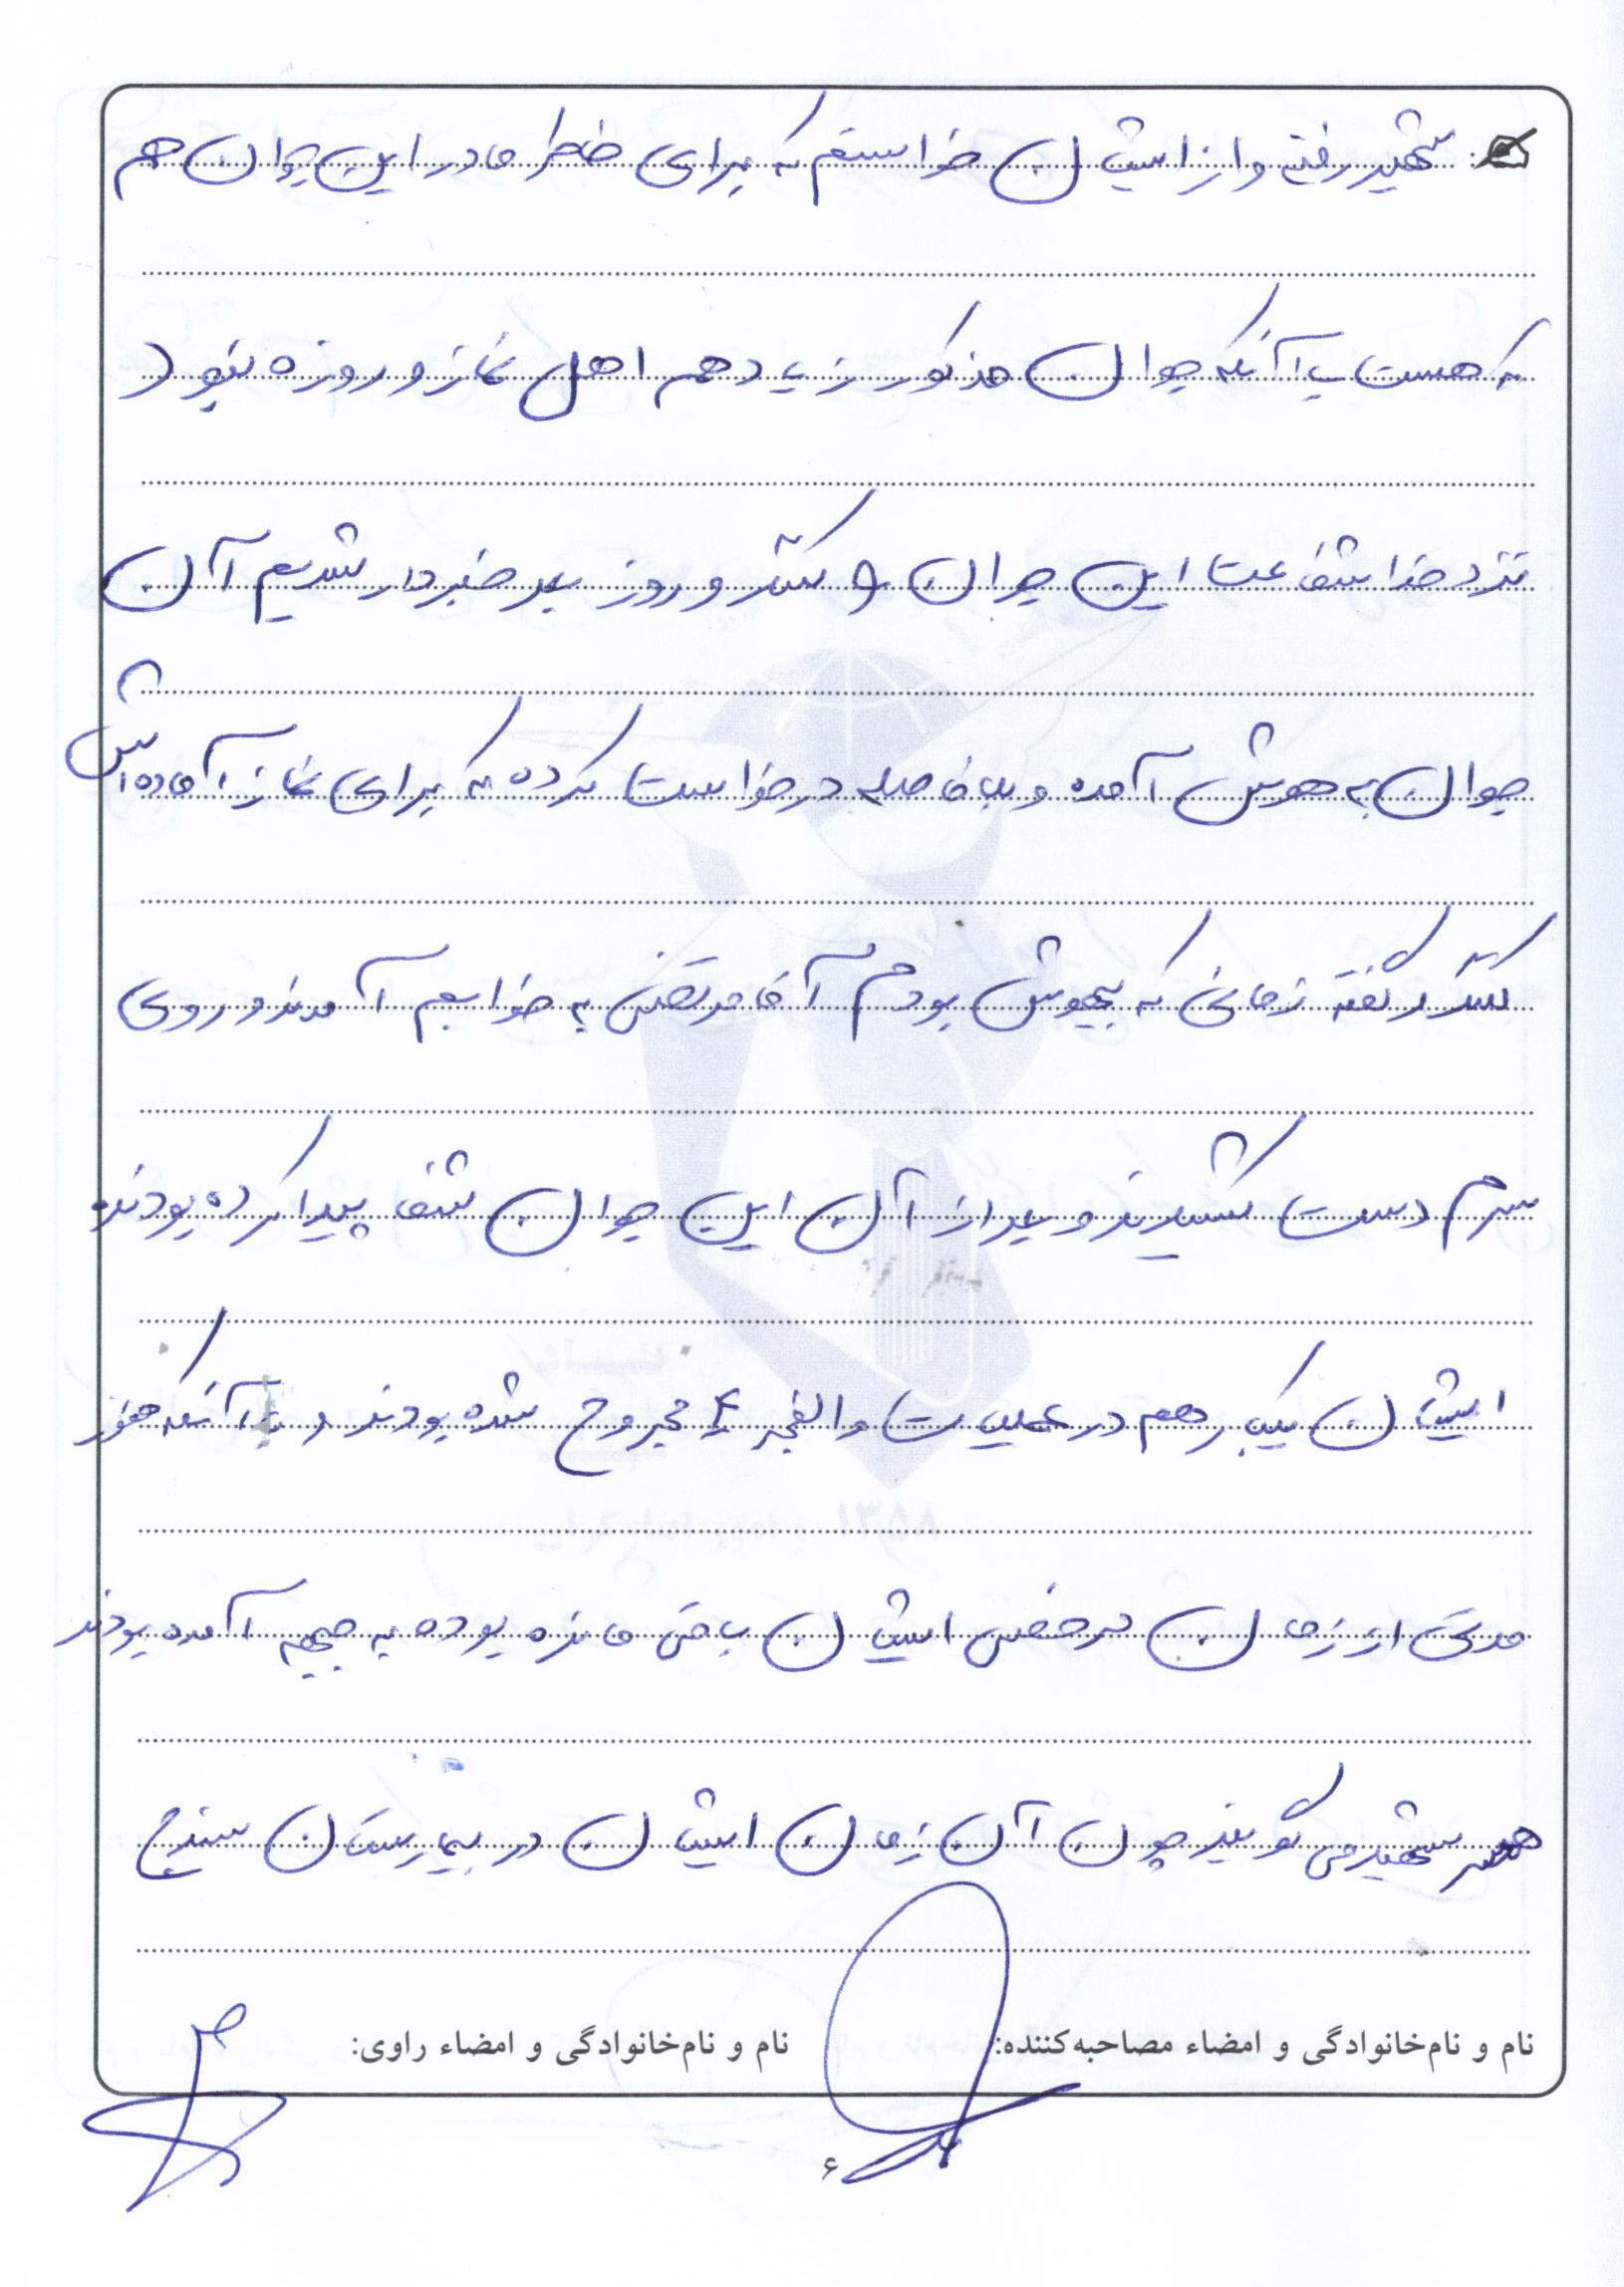 شهید رفتم و از ایشان خواستم که برای خاطر مادر این جوان هم
که هست با آنکه جوان مذکور زیاد هم اهل نماز و روزه نبود (
نزد خدا شفاعت این جوان را کنند و روز بعد خبردار شدیم آن
جوان به هوش آمده و بلافاصله درخواست کرده که برای نماز آماده اش
کنند گفته زمانی که بیهوش بودم آقا مرتضی به خوابم آمدند و روی
سرم دست کشیدند و بعد از آن این جوان شفا پیدا کرده بودند
ایشان یکبار هم در عملیات والفجر ۴ مجروح شده بودند و با آنکه هنوز
مدتی از زمان مرخصی ایشان باقی مانده بوده به جبهه آمده بودند
همسر شهید می گویند چون آن زمان ایشان در بیمارستان سنندج
نام و نام‌خانوادگی و امضاء مصاحبه‌کننده:
نام و نام‌خانوادگی و امضاء راوی:
۶